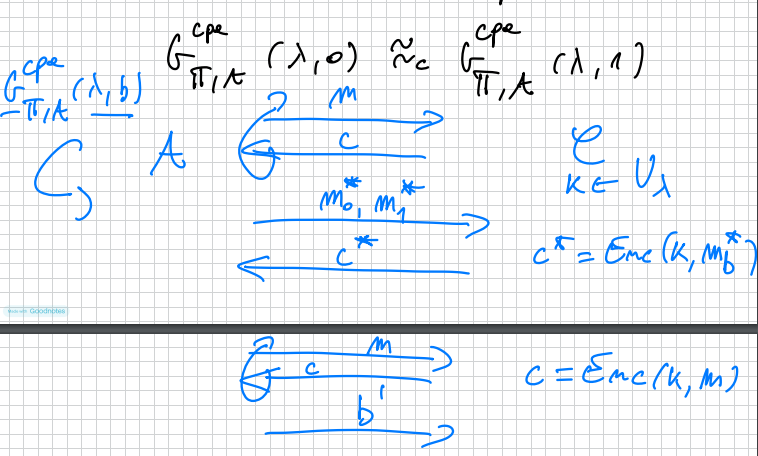 G^{cpa}_{Π,A} (λ,0) ≈_c G^{cpa}_{Π,A} (λ,1)
G^{cpa}_{Π,A} (λ,b)
m
A
C
c
K ← U_λ
m_0^*, m_1^*
c^*
c^* = Enc(K, m_b^*)
Made with Goodnotes
m
c
c = Enc(K, m)
b'